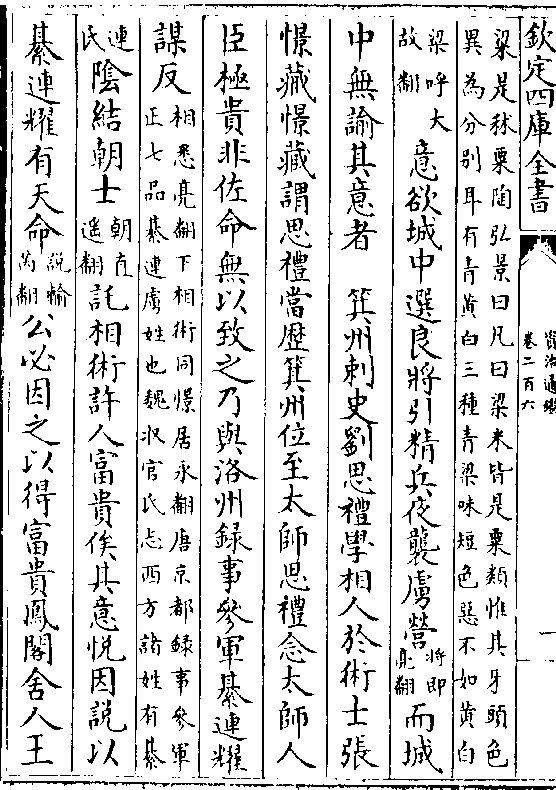 欽定四庫全書
資治通鑑
卷二百六
一
粱是秫粟陶弘景曰凡曰粱米皆是粟類惟其牙頭色
異為分别耳有青黄白三種青粱味短色惡不如黄白
粱呼大
故翻
意欲城中選良將引精兵夜襲虜營
將即
亮翻
而城
中無諭其意者　箕州刺史劉思禮學相人於術士張
憬藏憬藏謂思禮當歴箕州位至太師思禮念太師人
臣極貴非佐命無以致之乃與洛州録事參軍綦連耀
謀反
相悉亮翻下相術同憬居永翻唐京都録事參軍
正七品綦連虜姓也魏收官氏志西方諸姓有綦
連
氏
陰結朝士
朝直
遥翻
託相術許人富貴俟其意悦因説以
綦連耀有天命
説輸
芮翻
公必因之以得富貴鳳閣舍人王